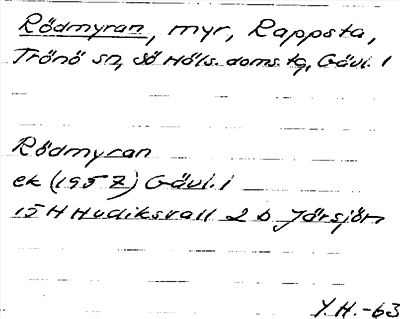 Rödmyran, myr, Rappsta,
Trönö sn, Sö Häls. doms. tg, Gävl. l
Rödmyran
ek (1957) Gävl. l
15 H Hudiksvall 2 b Järsjön
Y.H.-63